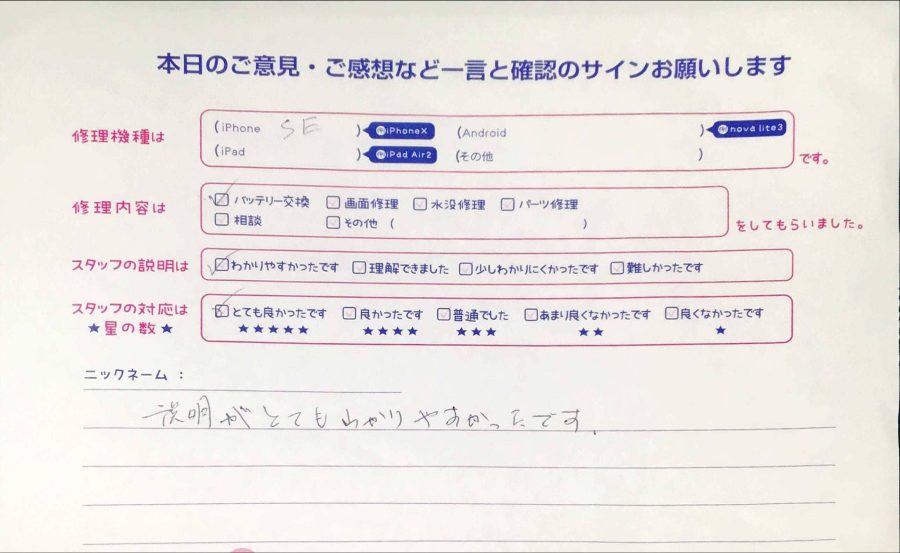 本日のご意見・ご感想など一言と確認のサインお願いします
修理機種は
(iPhone SE ) iPhoneX (Android ) nova lite3
(iPad ) iPad Air2 (その他 ) です。
修理内容は
バッテリー交換 画面修理 水没修理 パーツ修理
相談 その他 ( ) をしてもらいました。
スタッフの説明は わかりやすかったです 理解できました 少しわかりにくかったです 難しかったです
スタッフの対応は とても良かったです 良かったです 普通でした あまり良くなかったです 良くなかったです
★星の数★ ★★★★★ ★★★★ ★★★ ★★ ★
ニックネーム：
説明がとてもわかりやすかったです.